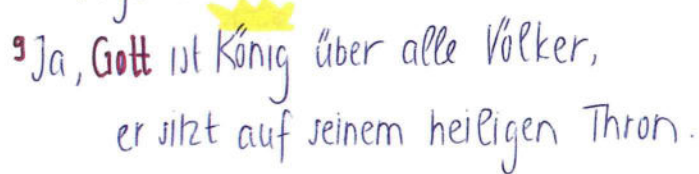 9 Ja, Gott ist König über alle Völker,
er sitzt auf seinem heiligen Thron.